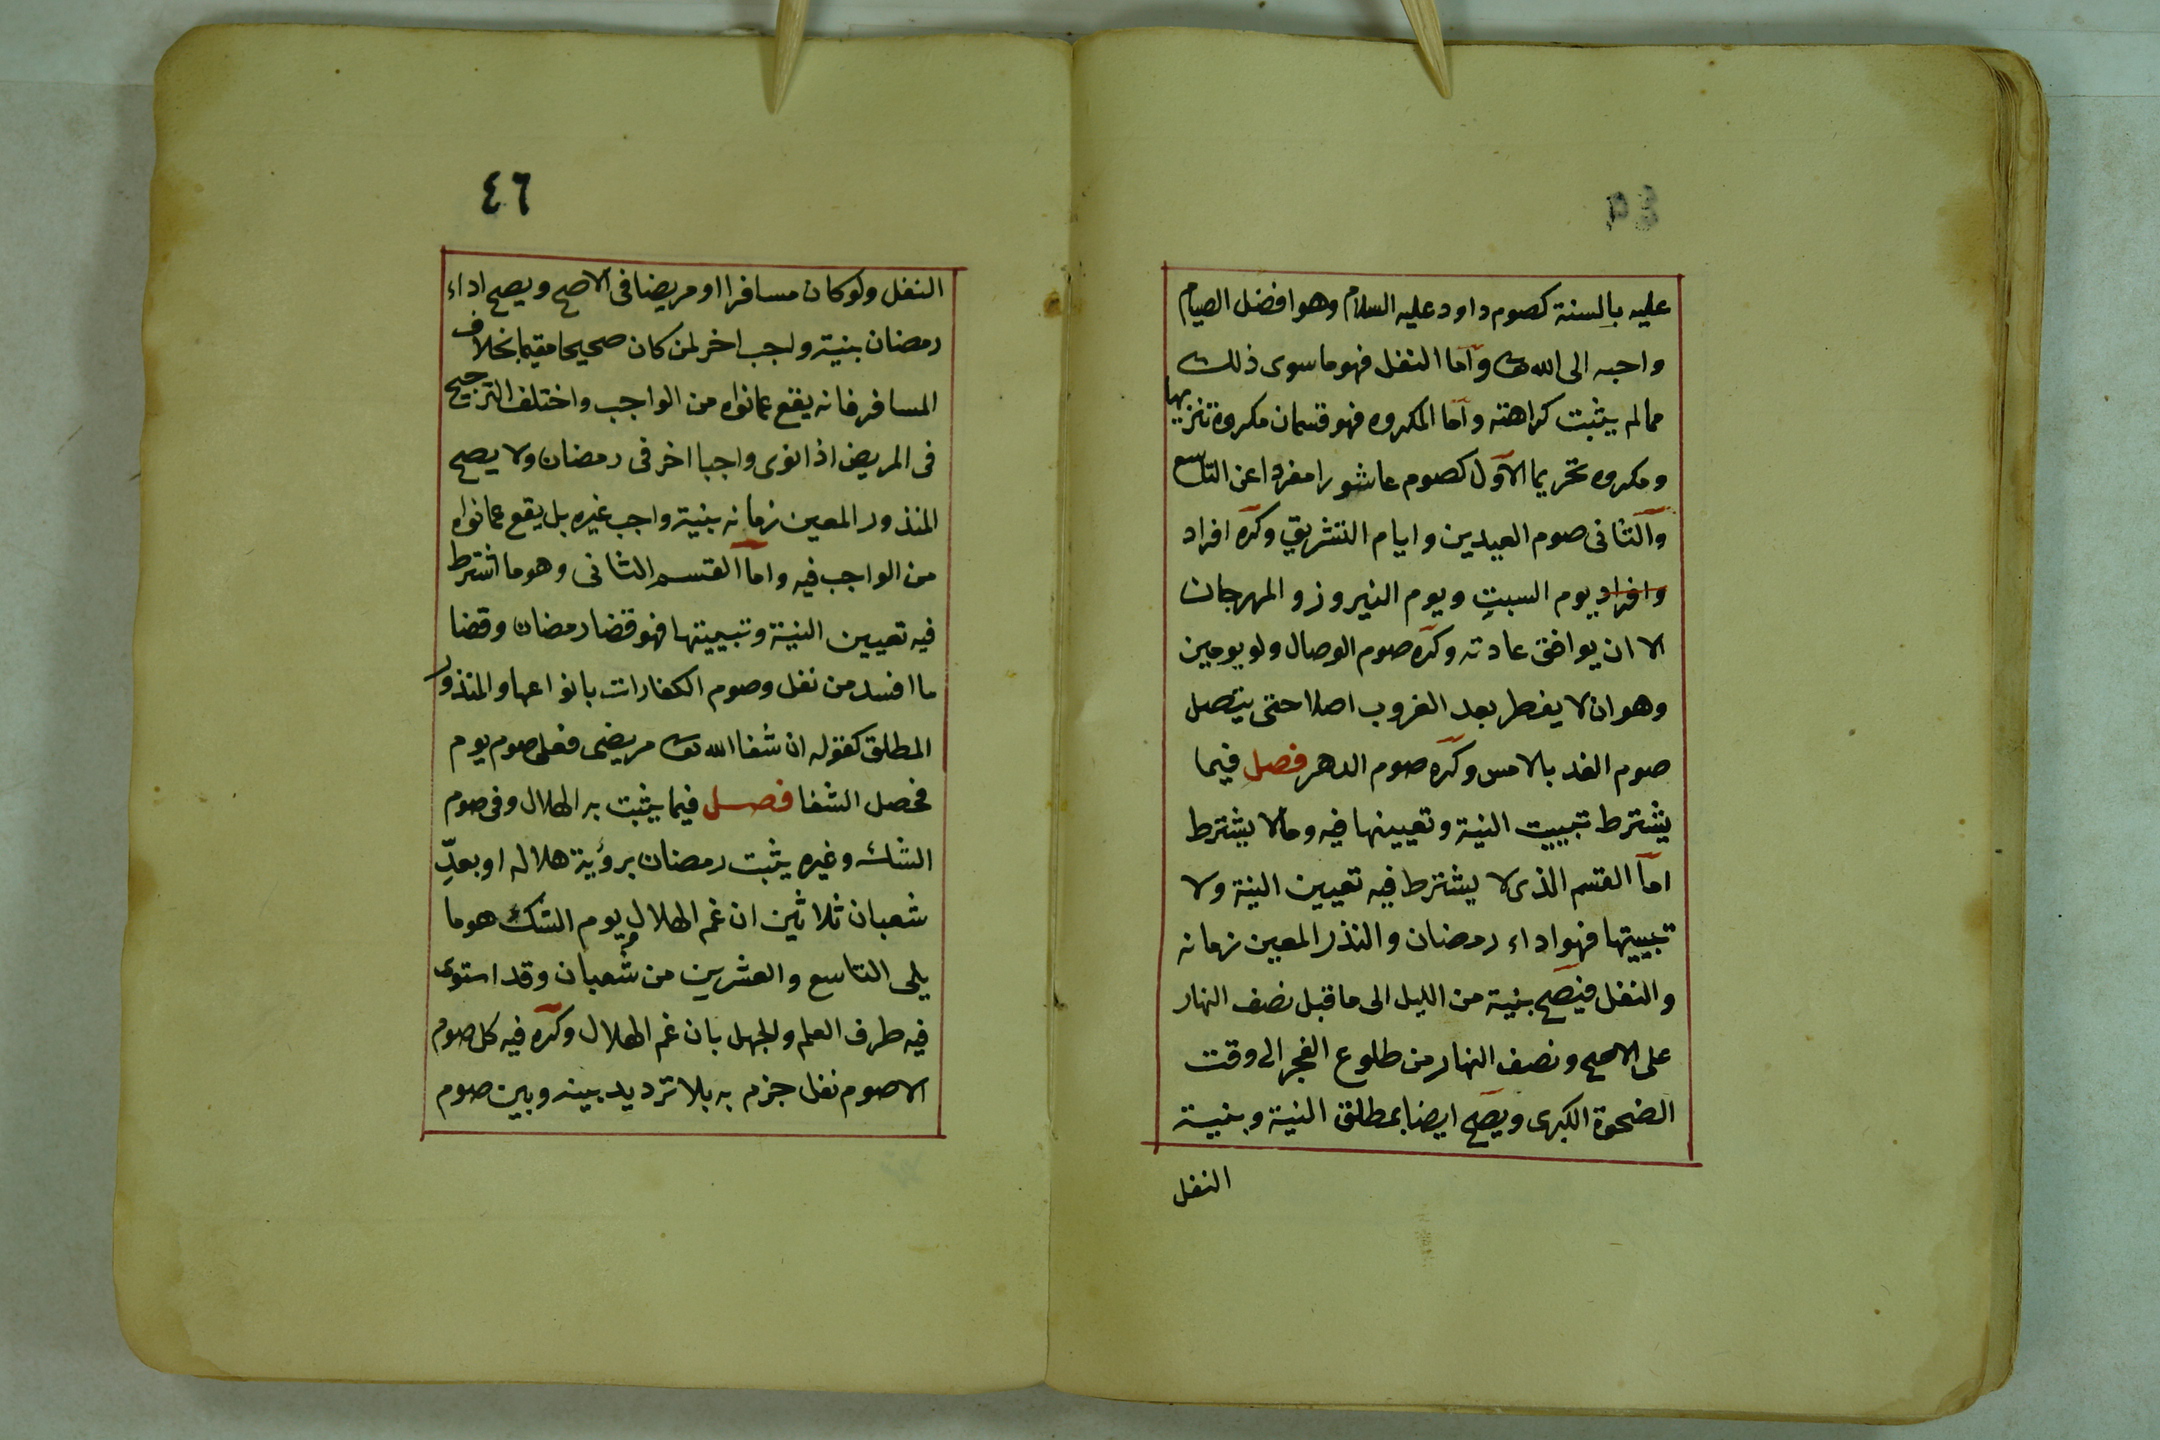 عليه بالسنة كصوم داود عليه السلام وهو افضل الصيام
واحبه الى الله تعالى وآما النفل فهو ما سوى ذلك
ممالم يثبت كراهته وآما المكروه فهو قسمان مكروه تنزيها
ومكروه تحريما الآول كصوم عاشورا مفردا عن التاسع
وآلثانى صوم العيدين وايام التشريق وكره افراد
وافراد يوم السبت ويوم النيروز والمهرجان
الا ان يوافق عادته وكره صوم الوصال ولو يومين
وهو ان لا يفطر بعد الغروب اصلا حتى يتصل
صوم الغد بالامس وكره صوم الدهر فصل فيما
يشترط تبييت النية وتعيينها فيه ومالا يشترط
امآ القسم الذى لا يشترط فيه تعيين النية ولا
تبييتها فهو اداء رمضان والنذر المعين زمانه
والنفل فيصح بنية من الليل الى ما قبل نصف النهار
على الاصح ونصف النهار من طلوع الفجر الى وقت
الضحوة الكبرى ويصح ايضا بمطلق النية وبنية
النفل
٤٦
النفل ولو كان مسافرا او مريضا فى الاصح ويصح اداء
رمضان بنية واجب اخر لمن كان صحيحا مقيما بخلاف
المسافر فانه يقع عمانواه من الواجب واختلف الترجيح
فى المريض اذا نوى واجبا اخر فى رمضان ولا يصح
المنذور المعين زمانه بنية واجب غيره بل يقع عمانواه
من الواجب فيه وامآ القسم الثانى وهو ما اشترط
فيه تعيين النية وتبييتها فهو قضا رمضان وقضا
ما افسد من نفل وصوم الكفارات بانواعها والمنذور
المطلق كقوله ان شفا الله تعالى مريضى فعلى صوم يوم
فحصل الشفا فصل فيما يثبت به الهلال وفى صوم
الشك وغيره يثبت رمضان برؤية هلاله او بعدّ
شعبان ثلاثين ان غم الهلال ويوم الشك هو ما
يلى التاسع والعشرين من شعبان وقد استوى
فيه طرف العلم والجهل بان غم الهلال وكره فيه كل صوم
الا صوم نفل جزم به بلا ترديد بينه وبين صوم